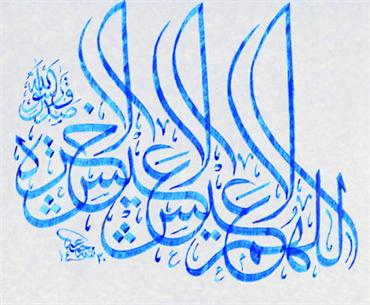 اللهم لا عيش إلا عيش الآخرة
صدق رسول الله